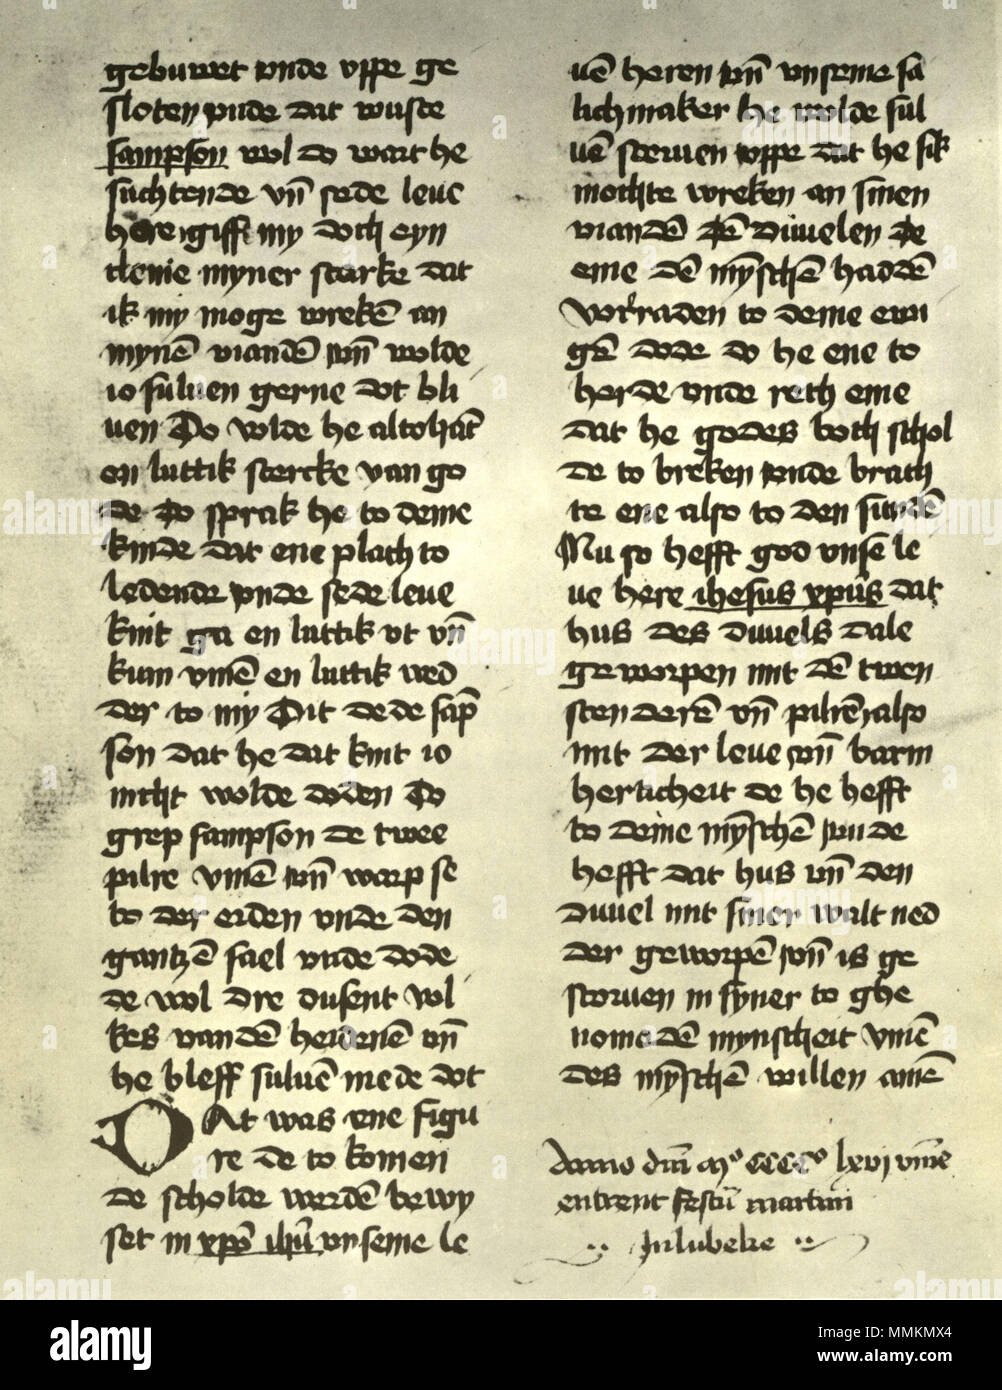 gebuwet vnde vppe ge
sloten vnde dat wuste
sampson wol do wart he
suchtende vn̄ sede leue
here giff my doch eyn
cleine myner starke dat
ik my moge wrekē an
mynē viandē vn̄ wolde
io suluen gerne dot bli
uen Do wolde he altohāt
en luttik stercke van go
de do sprak he to deme
kinde dat ene plach to
ledende vnde sede leue
kint ga en luttik vt vn̄
kum vmē en luttik wed
der to my Dit dede sāp
son dat he dat kint io
nicht wolde doden Do
grep sampson de twee
pilre vmē vn̄ warp se
to der erden vnde den
gantzē sael vnde dode
de wol dre dusent vol
kes van dē heidenē vn̄
he bleff suluē mede dot
DAt was ene figu
re de to komen
de scholde werdē bewy
set in xpō ihū vnseme le
uē heren vn̄ vnseme sa
lichmaker he wolde sul
uē steruen vppe dat he sik
mochte wreken an sinen
viandē dē duuelen de
eme dē mȳschē haddē
vorraden to deme ewi
gē dode do he ene to
herde vnde reth eme
dat he godes both schol
de to breken vnde brach
te ene also to den sundē
Nu so hefft god vnse le
ue here ihesus xpūs dat
hus des duuels dale
geworpen mit dē twen
stenderē vn̄ pilrē also
mit der leue vn̄ barm
herticheit de he hefft
to deme mȳschē vnde
hefft dat hus vn̄ den
duuel mit siner walt ned
der geworpē vn̄ is ge
storuen in syner to ghe
nomedē mynscheit vmē
des mȳschē willen amē
Anno dn̄i mº CCCCº lxvi vm̄e
entrent festū martini
In lubeke
alamy
Image ID: MMKMX4
www.alamy.com